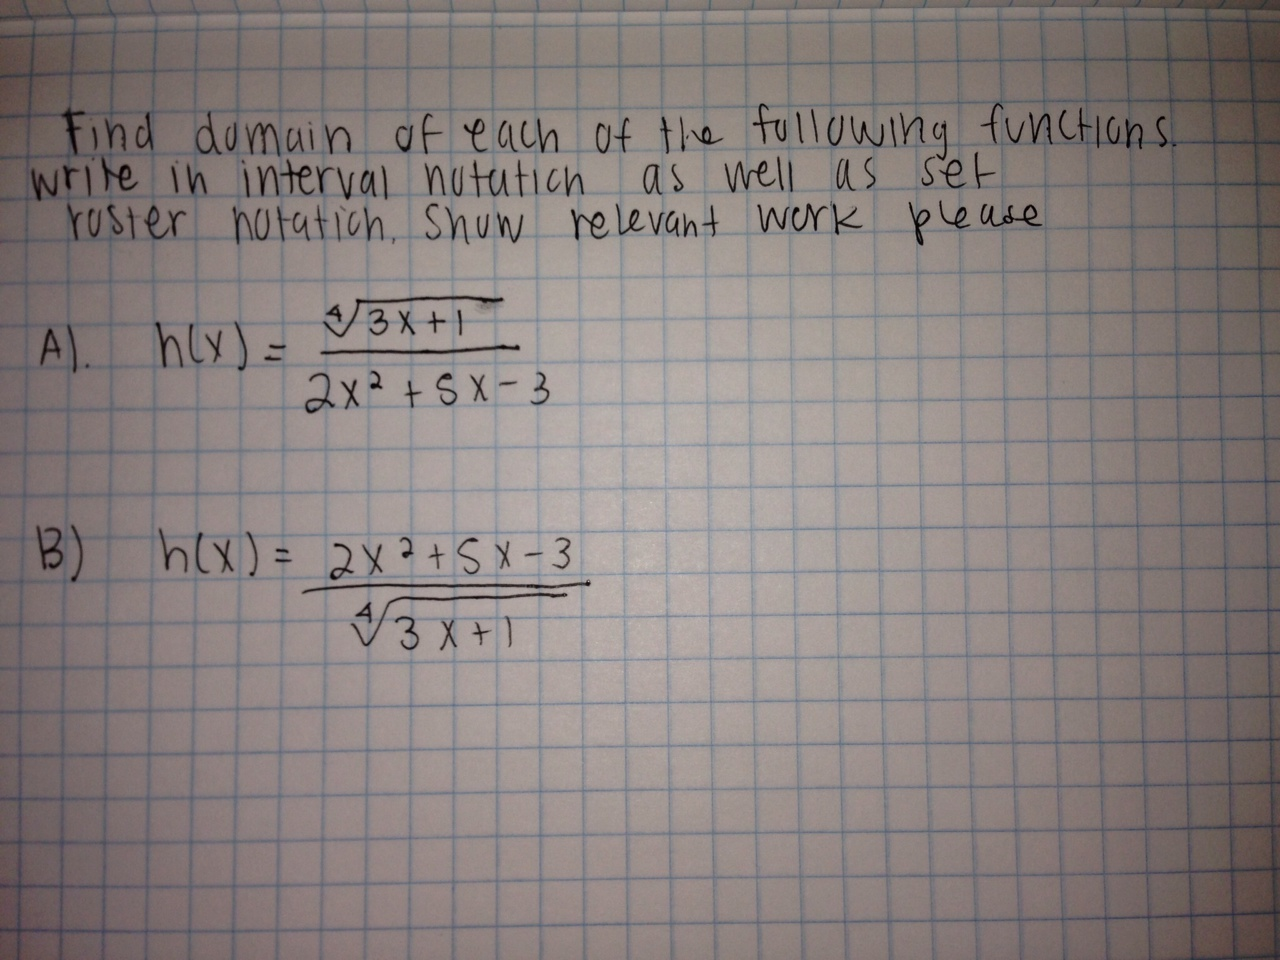 Find domain of each of the following functions.
write in interval notation as well as set
roster notation. Show relevant work please
A). h(x) = ∜(3x+1) / (2x² + 5x - 3)
B) h(x) = (2x² + 5x - 3) / ∜(3x+1)